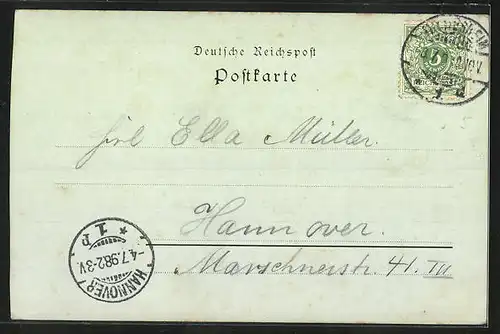 Deutsche Reichspost
Postkarte
Frl Ella Müller.
Hannover.
Marschnerstr. 41. III
HANNOVER
-4.7.98.2-3V.
* 1 P
5